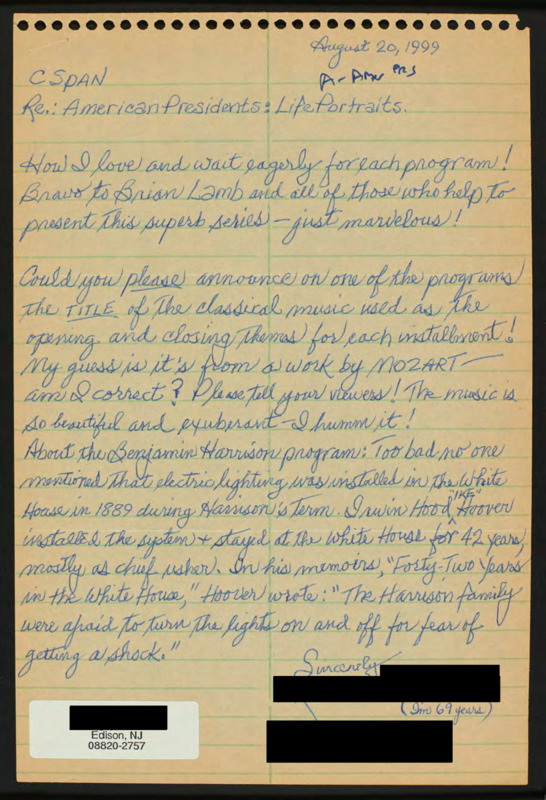 August 20, 1999
C SPAN
Re.: American Presidents: Life Portraits.
How I love and wait eagerly for each program!
Bravo to Brian Lamb and all of those who help to
present this superb series – just marvelous!
Could you please announce on one of the programs
the TITLE of the classical music used as the
opening and closing themes for each installment!
My guess is it's from a work by MOZART –
am I correct? Please tell your viewers! The music is
so beautiful and exuberant – I humm it!
About the Benjamin Harrison program: Too bad no one
mentioned that electric lighting was installed in the White
House in 1889 during Harrison's term. Irwin Hood "IKE" Hoover
installed the system + stayed at the White House for 42 years,
mostly as chief usher. In his memoirs, "Forty-Two Years
in the White House," Hoover wrote: "The Harrison family
were afraid to turn the lights on and off for fear of
getting a shock."
Sincerely
(I'm 69 years)
Edison, NJ
08820-2757